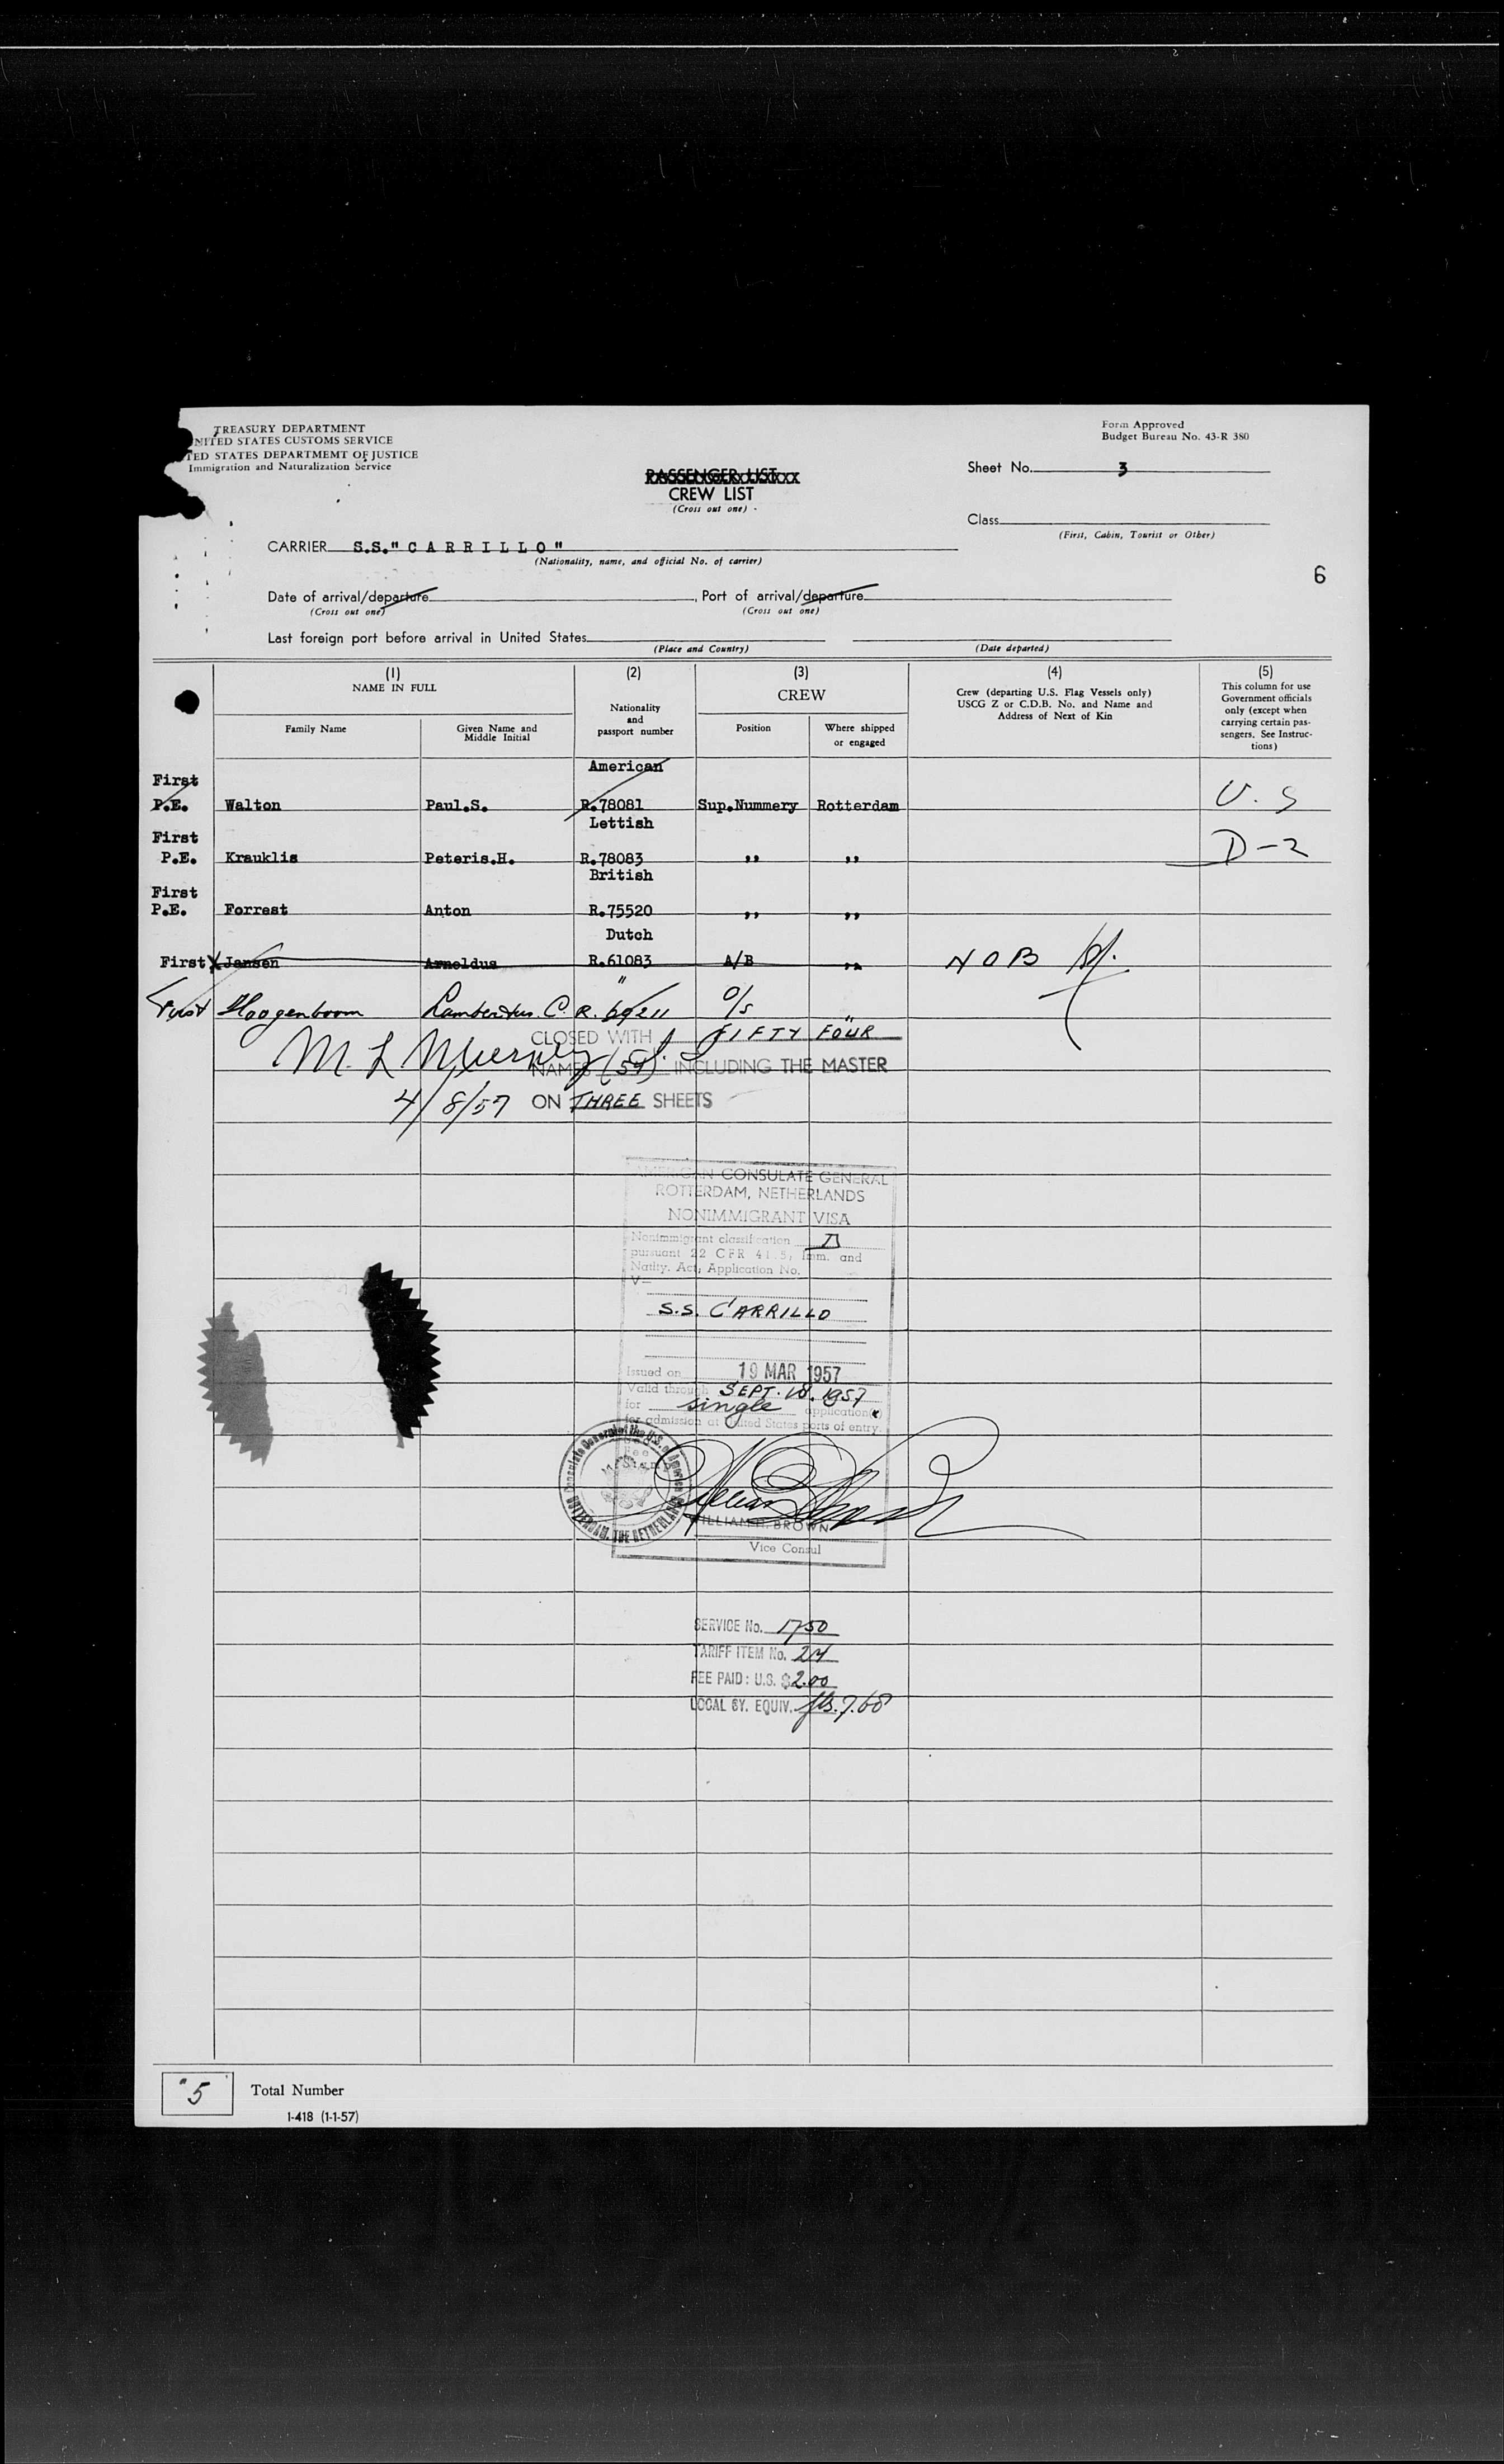 TREASURY DEPARTMENT
NITED STATES CUSTOMS SERVICE
TED STATES DEPARTMEMT OF JUSTICE
Immigration and Naturalization Service
Form Approved
Budget Bureau No. 43-R 380
Sheet No. 3
PASSENGER LIST
CREW LIST
(Cross out one)
Class
(First, Cabin, Tourist or Other)
CARRIER S.S."CARRILLO"
(Nationality, name, and official No. of carrier)
6
Date of arrival/departure Port of arrival/departure
(Cross out one) (Cross out one)
Last foreign port before arrival in United States
(Place and Country) (Date departed)
(1) (2) (3) (4) (5)
NAME IN FULL
Family Name
Given Name and Middle Initial
Nationality and passport number
CREW
Position
Where shipped or engaged
Crew (departing U.S. Flag Vessels only)
USCG Z or C.D.B. No. and Name and
Address of Next of Kin
This column for use
Government officials
only (except when
carrying certain pas-
sengers. See Instruc-
tions)
American
First
P.E. Walton Paul.S. R.78081 Sup.Nummery Rotterdam U.S
Lettish
First
P.E. Krauklis Peteris.H. R.78083 ,, ,, D-2
British
First
P.E. Forrest Anton R.75520 ,, ,,
Dutch
First X Jansen Arnoldus R.61083 A/B ,, NOB
"
First Hoogenboom Lambertus C. R. 69211 O/S "
CLOSED WITH FIFTY FOUR
M. L Murphy
NAMES (54) INCLUDING THE MASTER
4/8/57 ON THREE SHEETS
AMERICAN CONSULATE GENERAL
ROTTERDAM, NETHERLANDS
NONIMMIGRANT VISA
Nonimmigrant classification D
pursuant 22 CFR 41.5, Imm. and
Natlty. Act, Application No.
V-
S.S. CARRILLO
Issued on 19 MAR 1957
Valid through SEPT. 18. 1957
for single application(s)
for admission at United States ports of entry.
Consulate General of the U.S. of America
ROTTERDAM, THE NETHERLANDS
Fee
Stamp
WILLIAM H. BROWN
Vice Consul
SERVICE No. 1750
TARIFF ITEM No. 24
FEE PAID: U.S. $2.00
LOCAL CY. EQUIV. fls.7.68
"5 Total Number
I-418 (1-1-57)